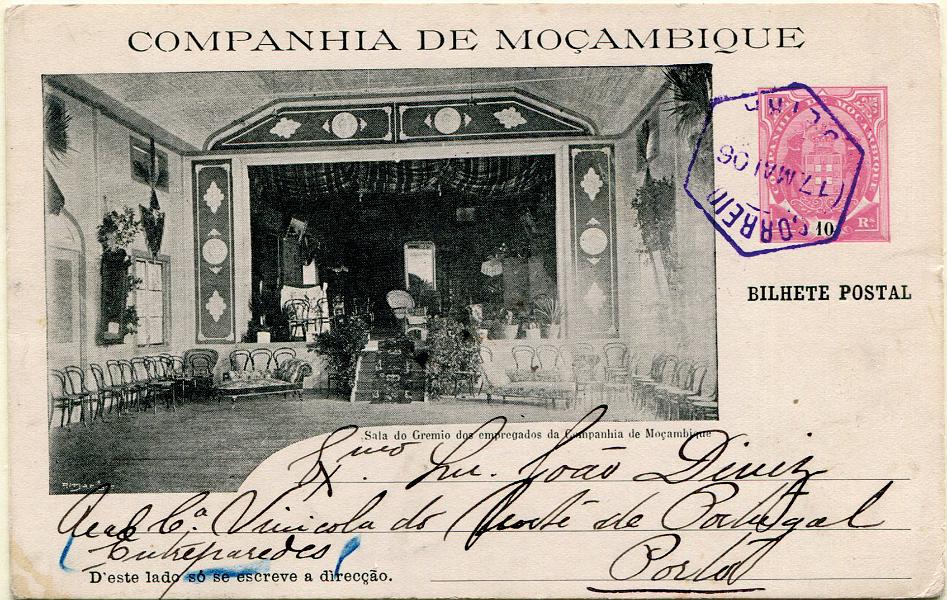 COMPANHIA DE MOÇAMBIQUE
COMPANHIA DE MOÇAMBIQUE
10 Rs
CORREIO
17 MAI 06
BILHETE POSTAL
Sala do Gremio dos empregados da Companhia de Moçambique
Exmo. Snr. João Diniz
Real Cª. Vinicola do Norte de Portugal
Entreparedes
Porto
D'este lado só se escreve a direcção.